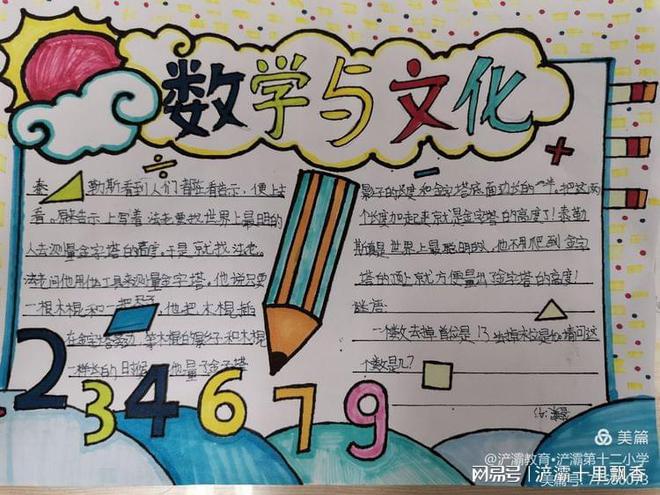 数学与文化
÷
+
泰 勒斯看到人们都在看告示,便上去
看。原来告示上写着法老要找世界上最聪明的
人去测量金字塔的高度。于是就找法老。
法老问他用什么工具来测量金字塔,他说只要
一根木棍和一把尺子,他把木棍插
在金字塔旁边,等木棍的影子和木棍
一样长的
影子的长度和金字塔底面边长的一半。把这两
个长度加起来就是金字塔的高度了!泰勒
斯真是世界上最聪明的人,他不用爬到金字
塔的顶上就方便量出了金字塔的高度!
谜语:
一个数去掉首位是13
个数是几?
2 3 4 6 7 9
美篇
@浐灞教育·浐灞第十二小学
搜狐号|浐灞十里飘香
美篇号: